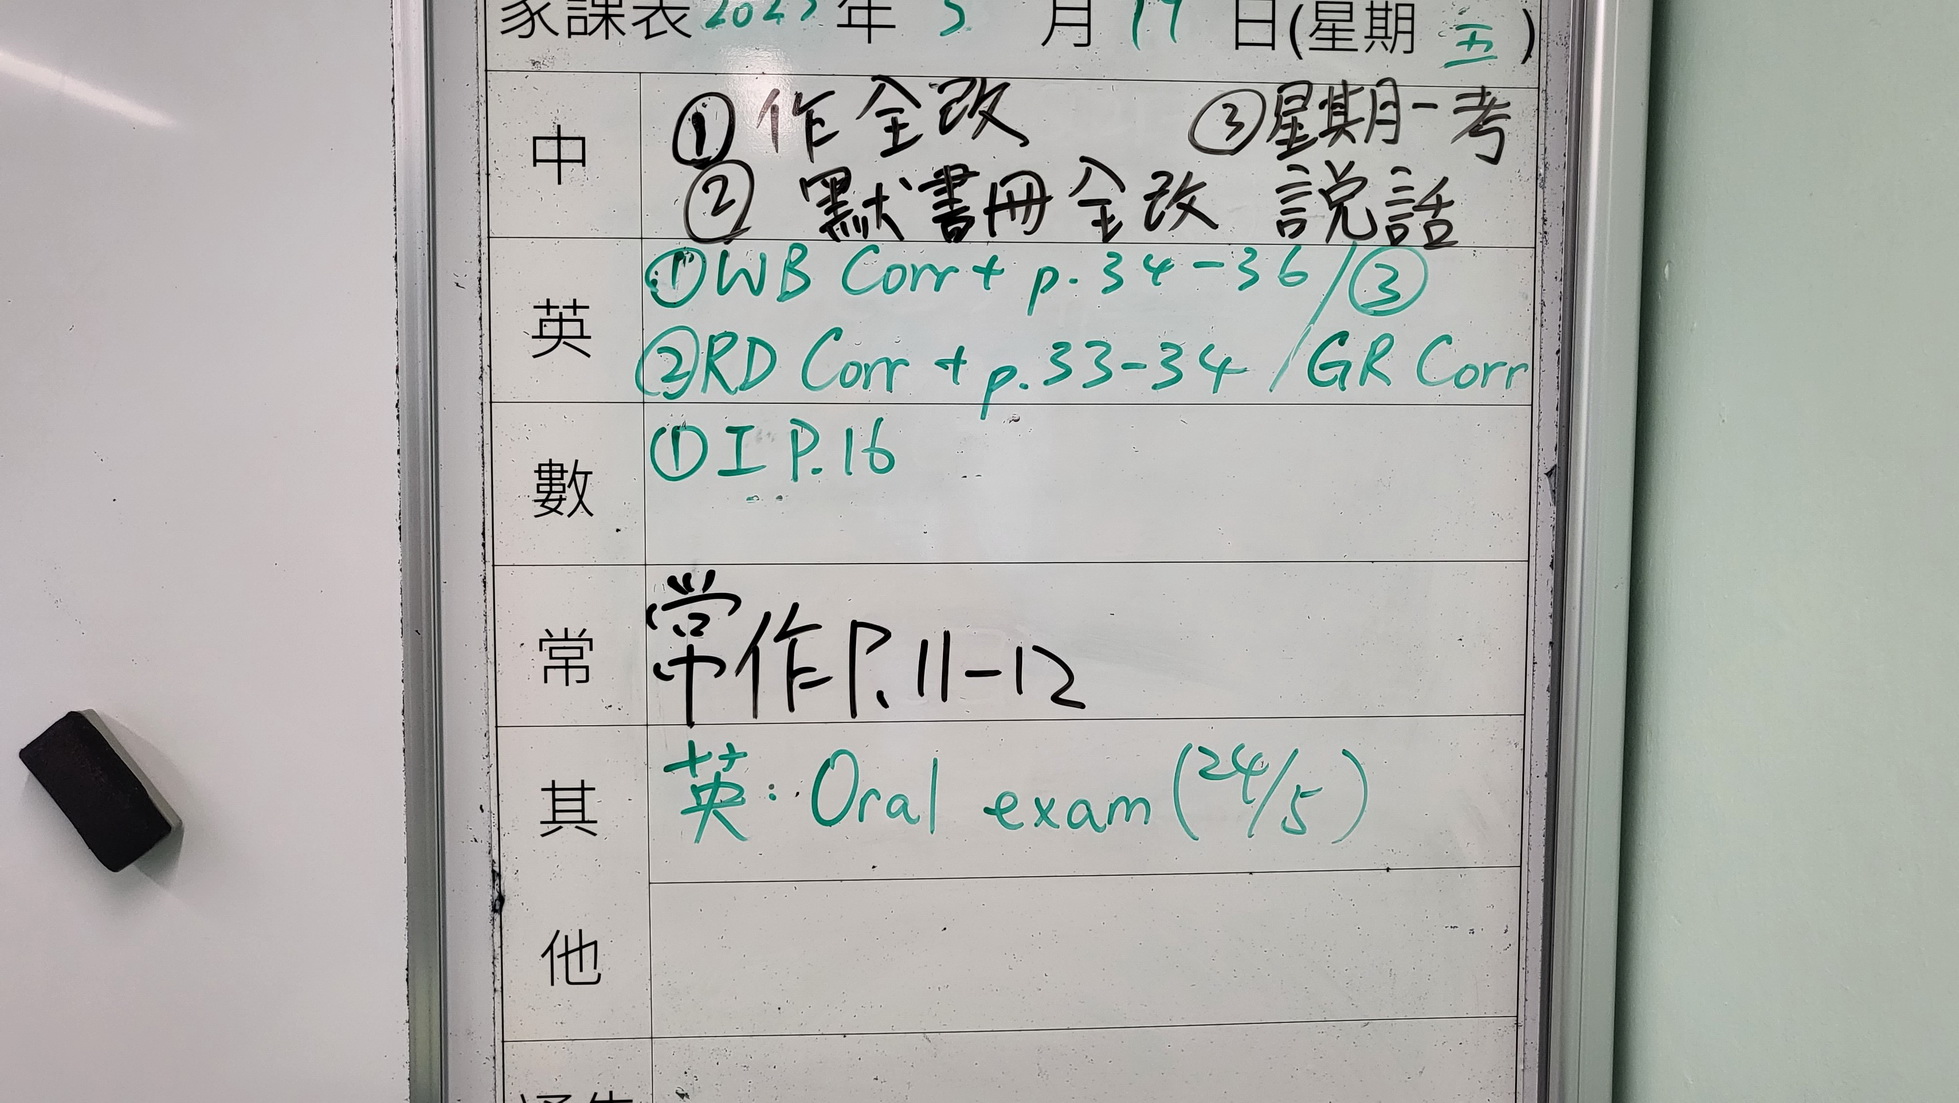 家課表 2023 年 5 月 19 日(星期 五)
中
① 作 全改 ③星期一考
② 默書冊全改 說話
英
①WB Corr + p.34-36 / ③
②RD Corr + p.33-34 / GR Corr
數
① I P.16
常
常作P.11-12
其他
英: Oral exam (24/5)